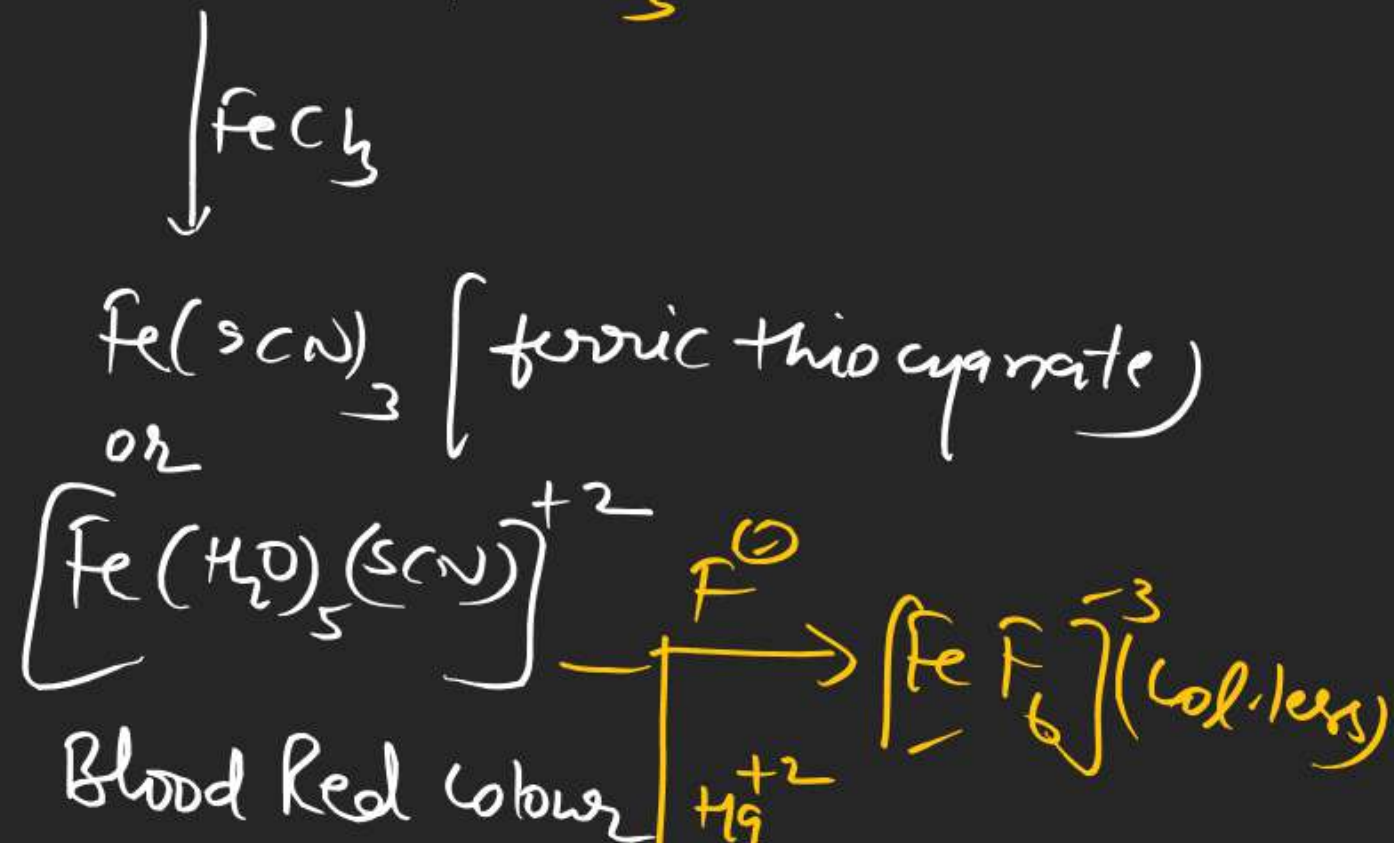 FeCl3
Fe(SCN)3 [ferric thiocyanate)
or
[Fe(H2O)5(SCN)]+2
F⊖
[FeF6]-3 (Col.less)
Blood Red colour
Hg+2